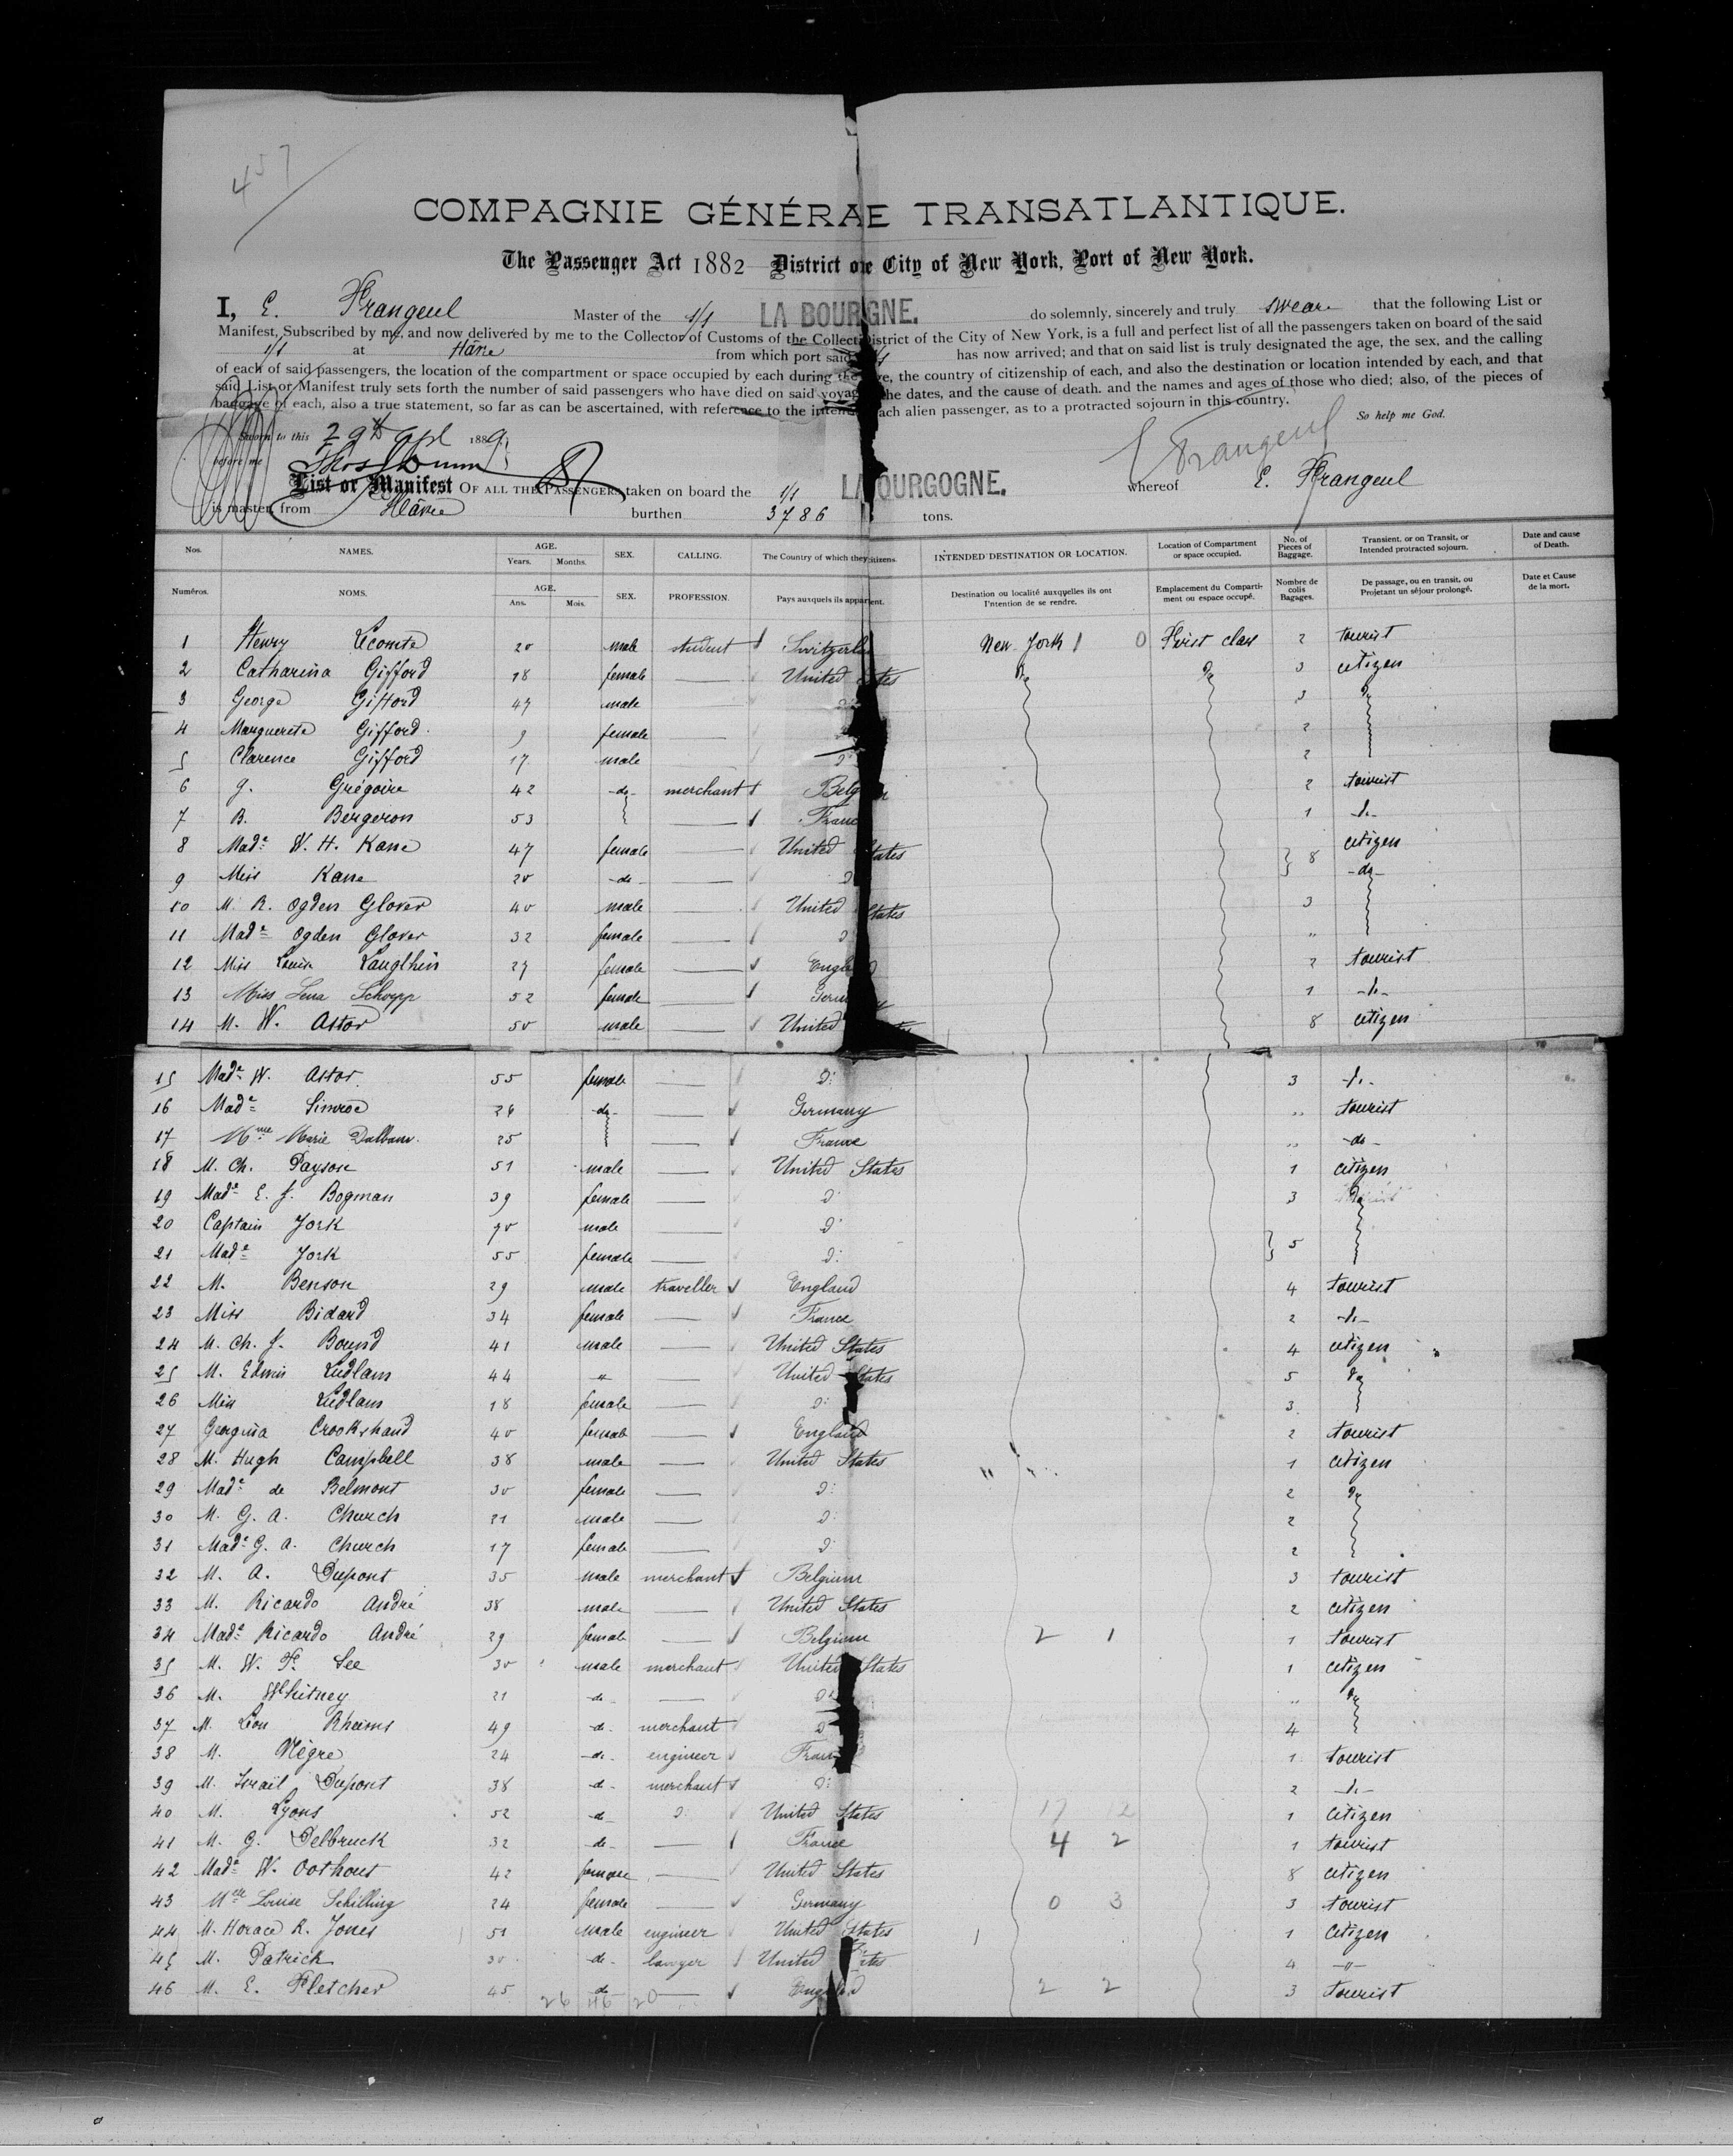 457
COMPAGNIE GÉNÉRAE TRANSATLANTIQUE.
The Passenger Act 1882 District o City of New York, Port of New York.
I, E. Frangeul Master of the s/s LA BOURGNE. do solemnly, sincerely and truly swear that the following List or
Manifest, Subscribed by me, and now delivered by me to the Collector of Customs of the Collect istrict of the City of New York, is a full and perfect list of all the passengers taken on board of the said
s/s at Hâvre from which port said s/s has now arrived; and that on said list is truly designated the age, the sex, and the calling
of each of said passengers, the location of the compartment or space occupied by each during the e, the country of citizenship of each, and also the destination or location intended by each, and that
said List or Manifest truly sets forth the number of said passengers who have died on said voyag the dates, and the cause of death. and the names and ages of those who died; also, of the pieces of
baggage of each, also a true statement, so far as can be ascertained, with reference to the inten ach alien passenger, as to a protracted sojourn in this country.
So help me God.
Sworn to this 29th Apl 1889
before me Thos Dunn E Frangeul
List or Manifest OF ALL THE PASSENGERS taken on board the s/s LA OURGOGNE. whereof E. Frangeul
is master, from Hâvre burthen 3786 tons.
Nos. NAMES. AGE. Years. Months. SEX. CALLING. The Country of which they citizens. INTENDED DESTINATION OR LOCATION. Location of Compartment or space occupied. No. of Pieces of Baggage. Transient, or on Transit, or Intended protracted sojourn. Date and cause of Death.
Numéros. NOMS. AGE. Ans. Mois. SEX. PROFESSION. Pays auxquels ils appartent. Destination ou localité auxquelles ils ont l'intention de se rendre. Emplacement du Compartiment ou espace occupé. Nombre de colis Bagages. De passage, ou en transit, ou Projetant un séjour prolongé. Date et Cause de la mort.
1 Henry Lecomte 20 male student Switzerl New York 1 0 First class 2 tourist
2 Catharina Gifford 18 female United tes do do 3 citizen
3 George Gifford 47 male do 3 do
4 Marguerite Gifford 9 female 2
5 Clarence Gifford 17 male do 2
6 G. Grégoire 42 do merchant Belg m 2 tourist
7 B. Bergeron 53 Franc 1 do
8 Made W. H. Kane 47 female United States 8 citizen
9 Miss Kane 20 do do do
10 M. R. Ogden Glover 40 male United States 3
11 Made Ogden Glover 32 female do "
12 Miss Louisa Laughlin 27 female Engl d 2 tourist
13 Miss Lena Schopp 52 female Germ y 1 do
14 M. W. Astor 50 male United tes 8 citizen
15 Made W. Astor 55 female do 3 do
16 Made Simroe 26 do Germany " tourist
17 Mme Marie Dalbaur 25 France " do
18 M. Ch. Payson 51 male United States 1 citizen
19 Made E. J. Bogman 39 female do 3 do
20 Captain York 70 male do
21 Made York 55 female do 5
22 M. Benson 29 male traveller England 4 tourist
23 Miss Bidard 34 female France 2 do
24 M. Ch. J. Bound 41 male United States 4 citizen
25 M. Edwin Ludlam 44 " United States 5 do
26 Miss Ludlam 18 female do 3
27 Georgina Crookshand 40 female England 2 tourist
28 M. Hugh Campbell 38 male United States 1 citizen
29 Made de Belmont 30 female do 2 do
30 M. G. A. Church 21 male do 2
31 Made G. A. Church 17 female do 2
32 M. A. Dupont 35 male merchant Belgium 3 tourist
33 M. Ricardo André 38 male United States 2 citizen
34 Made Ricardo André 29 female Belgium 2 1 1 tourist
35 M. W. F. Lee 30 male merchant United States 1 citizen
36 M. Whitney 21 do do " do
37 M. Leon Rheims 49 do merchant do 4
38 M. Nègre 24 do engineer Fran 1 tourist
39 M. Israël Dupont 38 do merchant do 2 do
40 M. Lyons 52 do do United States 17 2 1 citizen
41 M. G. Delbruck 32 do France 4 2 1 tourist
42 Made W. Oothout 42 female United States 8 citizen
43 Melle Louise Schilling 24 female Germany 0 3 3 tourist
44 M. Horace R. Jones 51 male engineer United States 1 1 citizen
45 M. Patrick 30 do lawyer United tes 4 "
46 M. E. Fletcher 45 do Engl d 2 2 3 tourist
26 46 20